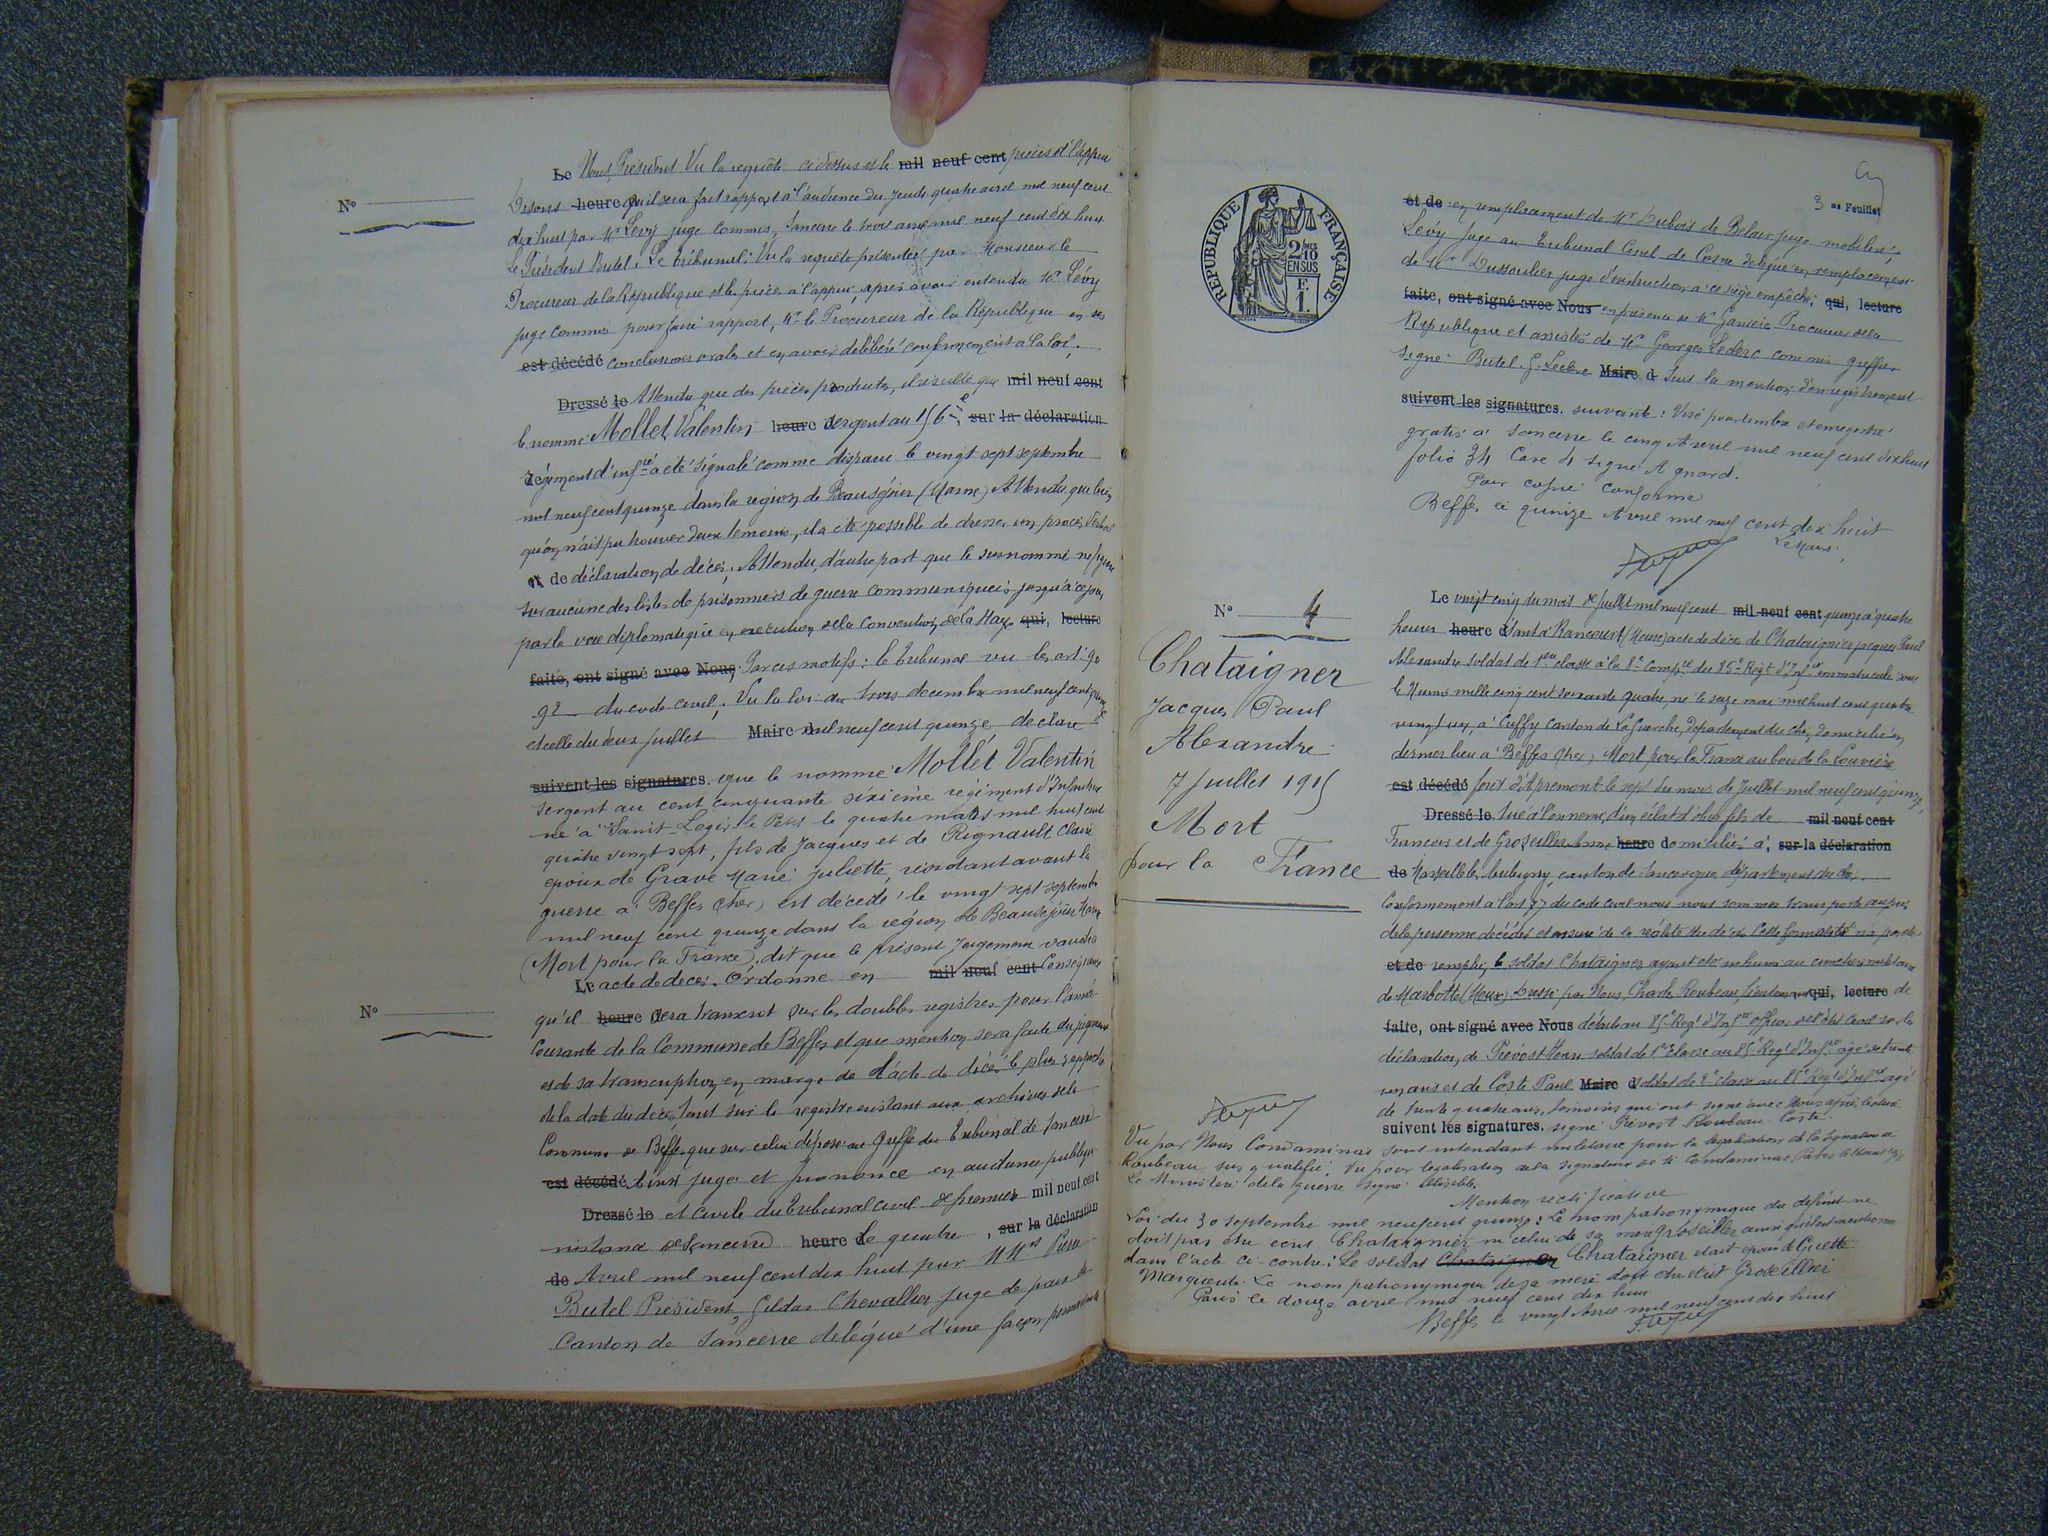 Le Nous, Président Vu la requête ci dessus et le mil neuf cent pièces à l'appui
Disons heure qu'il sera fait rapport à l'audience du Jeudi quatre avril mil neuf cent
N°
dix huit par Mr Lévy juge commis, Sancerre le trois avril mil neuf cent dix huit
le Président Butel, Le tribunal: Vu la requête présentée par Monsieur le
Procureur de la République et les pièces à l'appui, après avoir entendu Mr Lévy
juge commis pour faire rapport, Mr le Procureur de la République en ses
est décédé conclusions orales et en avoir délibéré conformément à la loi,
Dressé le Attendu que des pièces produites, il résulte que mil neuf cent
le nommé Mollet Valentin heure d sergent au 156e, sur la déclaration
régiment d'infrie a été signalé comme disparu le vingt sept septembre
mil neuf cent quinze dans la région de Beauséjour (Marne) Attendu que bien
qu'on n'ait pu trouver deux témoins, il a été possible de dresser un procès verbal
et de déclaration de décès, Attendu, d'autre part que le surnommé ne figure
sur aucune des listes de prisonniers de guerre communiquées jusqu'à ce jour
par la voie diplomatique en exécution de la Convention de La Haye qui, lecture
faite, ont signé avec Nous. Par ces motifs: le tribunal vu les art. 90
92 du code civil, Vu la loi du trois décembre mil neuf cent quinze
et celle du deux juillet Maire d mil neuf cent quinze déclare
suivent les signatures. que le nommé Mollet Valentin
sergent au cent cinquante sixième régiment d'Infanterie
né à Saint-Léger-le-Petit le quatre mars mil huit cent
quatre vingt sept, fils de Jacques et de Rignault Claire
époux de Grave Marie Juliette, résidant avant la
guerre à Beffes (Cher) est décédé le vingt sept septembre
mil neuf cent quinze dans la région de Beauséjour Marne
(Mort pour la France), dit que le présent jugement vaudra
Le acte de décès. Ordonne en mil neuf cent conséquence
N°
qu'il heure d sera transcrit sur les doubles registres pour l'année
courante de la Commune de Beffes et que mention sera faite du jugement
et de sa transcription en marge de l'acte de décès le plus rapproché
de la date du décès tant sur le registre existant aux archives de la
Commune de Beffes que sur celui déposé au Greffe du Tribunal de Sancerre
est décédé Ainsi jugé et prononcé en audience publique
Dressé le et civile du tribunal civil de première mil neuf cent
instance de Sancerre heure d le quatre, sur la déclaration
de Avril mil neuf cent dix huit par MMrs Pierre
Butel Président, Gildas Chevallier Juge de paix du
canton de Sancerre délégué d'une façon permanente
3 me Feuillet
RÉPUBLIQUE FRANÇAISE
2 MES
10
EN SUS
F.
1.
et de en remplacement de Mr Dubois de Belair juge mobilisé,
Lévy Juge au Tribunal Civil de Cosne délégué en remplacement
de Mr Dussoulier juge d'instruction à ce siège empêché; qui, lecture
faite, ont signé avec Nous en présence de Mr Procureur de la
République et assistés de Mr Georges Leclerc commis greffier
signé: Butel. G. Leclerc Maire d Suit la mention d'enregistrement
suivent les signatures. suivante: Visé pour timbre et enregistré
gratis à Sancerre le cinq Avril mil neuf cent dix huit
folio 34 Case 4 signé Agnard.
Pour copie conforme
Beffes ce quinze Avril mil neuf cent dix huit
Le Maire,
N° 4
Chataigner
Jacques Paul
Alexandre
7 Juillet 1915
Mort
pour la France
Le vingt cinq du mois de Juillet mil neuf cent mil neuf cent quinze à quatre
heures heure d étant à Rancourt (Meuse) acte de décès de Chataignier Jacques Paul
Alexandre soldat de 1ère classe à la 8e Compie du 85e Régt d'Infrie immatriculé sous
le Numéro mille cinq cent soixante quatre, né le seize mai mil huit cent quatre
vingt un, à Cuffy canton de La Guerche, département du Cher, domicilié en
dernier lieu à Beffes (Cher), Mort pour la France au bois de la Louvière
est décédé forêt d'Apremont le sept du mois de Juillet mil neuf cent quinze,
Dressé le Tué à l'ennemi, d'un éclat d'obus fils de mil neuf cent
François et de Groseiller Anne heure domiciliés à, sur la déclaration
de Marseille les Aubigny, canton de Sancergues département du Cher.
Conformément à l'art 77 du code civil nous nous sommes transporté auprès
de la personne décédée et assuré de la réalité du décès Cette formalité n'a pas été
et de remplie, le soldat Chataigner ayant été inhumé au cimetière militaire
de Marbotte (Meuse) Dressé par Nous, Charles Roubeau lieutenant qui, lecture de
faite, ont signé avec Nous détail au 85e Régt d'Infrie officier de l'état civil sur la
déclaration, de Prévost Henri soldat de 1ère classe au 85e Régt d'Infrie âgé de trente
un ans et de Coste Paul Maire d soldat de 2e classe au 85e Régt d'Infrie âgé
de trente quatre ans, témoins qui ont signé avec Nous après lecture
suivent les signatures. signé Prévost Roubeau Coste.
Vu par Nous Condaminas sous intendant militaire pour la légalisation de la signature de
Roubeau sus qualifié. Vu pour légalisation de la signature de Condaminas Paris le
Le Ministère de la guerre signé Illisible.
Mention rectificative
Loi du 30 septembre mil neuf cent quinze: Le nom patronymique du défunt ne
doit pas être écrit Chataignier ni celui de sa mère Groseiller ainsi qu'il est mentionné
dans l'acte ci-contre: Le soldat Chataignier Chataigner était époux de Guette
Marguerite. Le nom patronymique de sa mère doit être écrit Groseillier
Paris le douze avril mil neuf cent dix huit
Beffes, le vingt Avril mil neuf cent dix huit